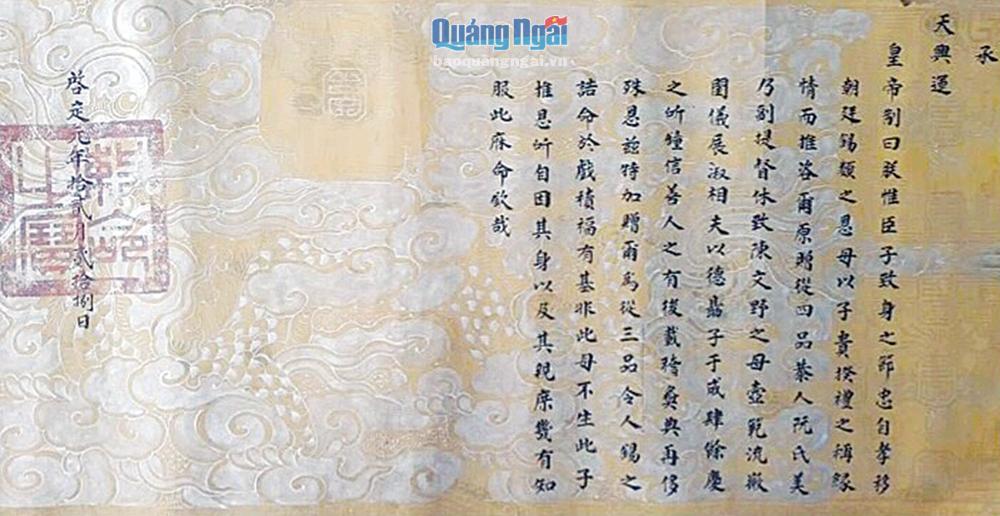 承
天興運
皇帝制曰朕惟臣子致身之節忠自孝移
朝廷錫類之恩母以子貴揆禮之稱緣
情而推咨爾原贈從四品恭人阮氏美
乃副提督休致陳文野之母壼範流徽
閨儀展淑相夫以德嘉子于成肆餘慶
之所鐘信善人之有後載稽彝典再侈
殊恩茲特加贈爾爲從三品令人錫之
誥命於戲積福有基非此母不生此子
推恩所自因其身以及其親庶幾有知
服此庥命欽哉
啓定元年拾貳月貳拾捌日
Quảng Ngãi
baoquangngai.vn